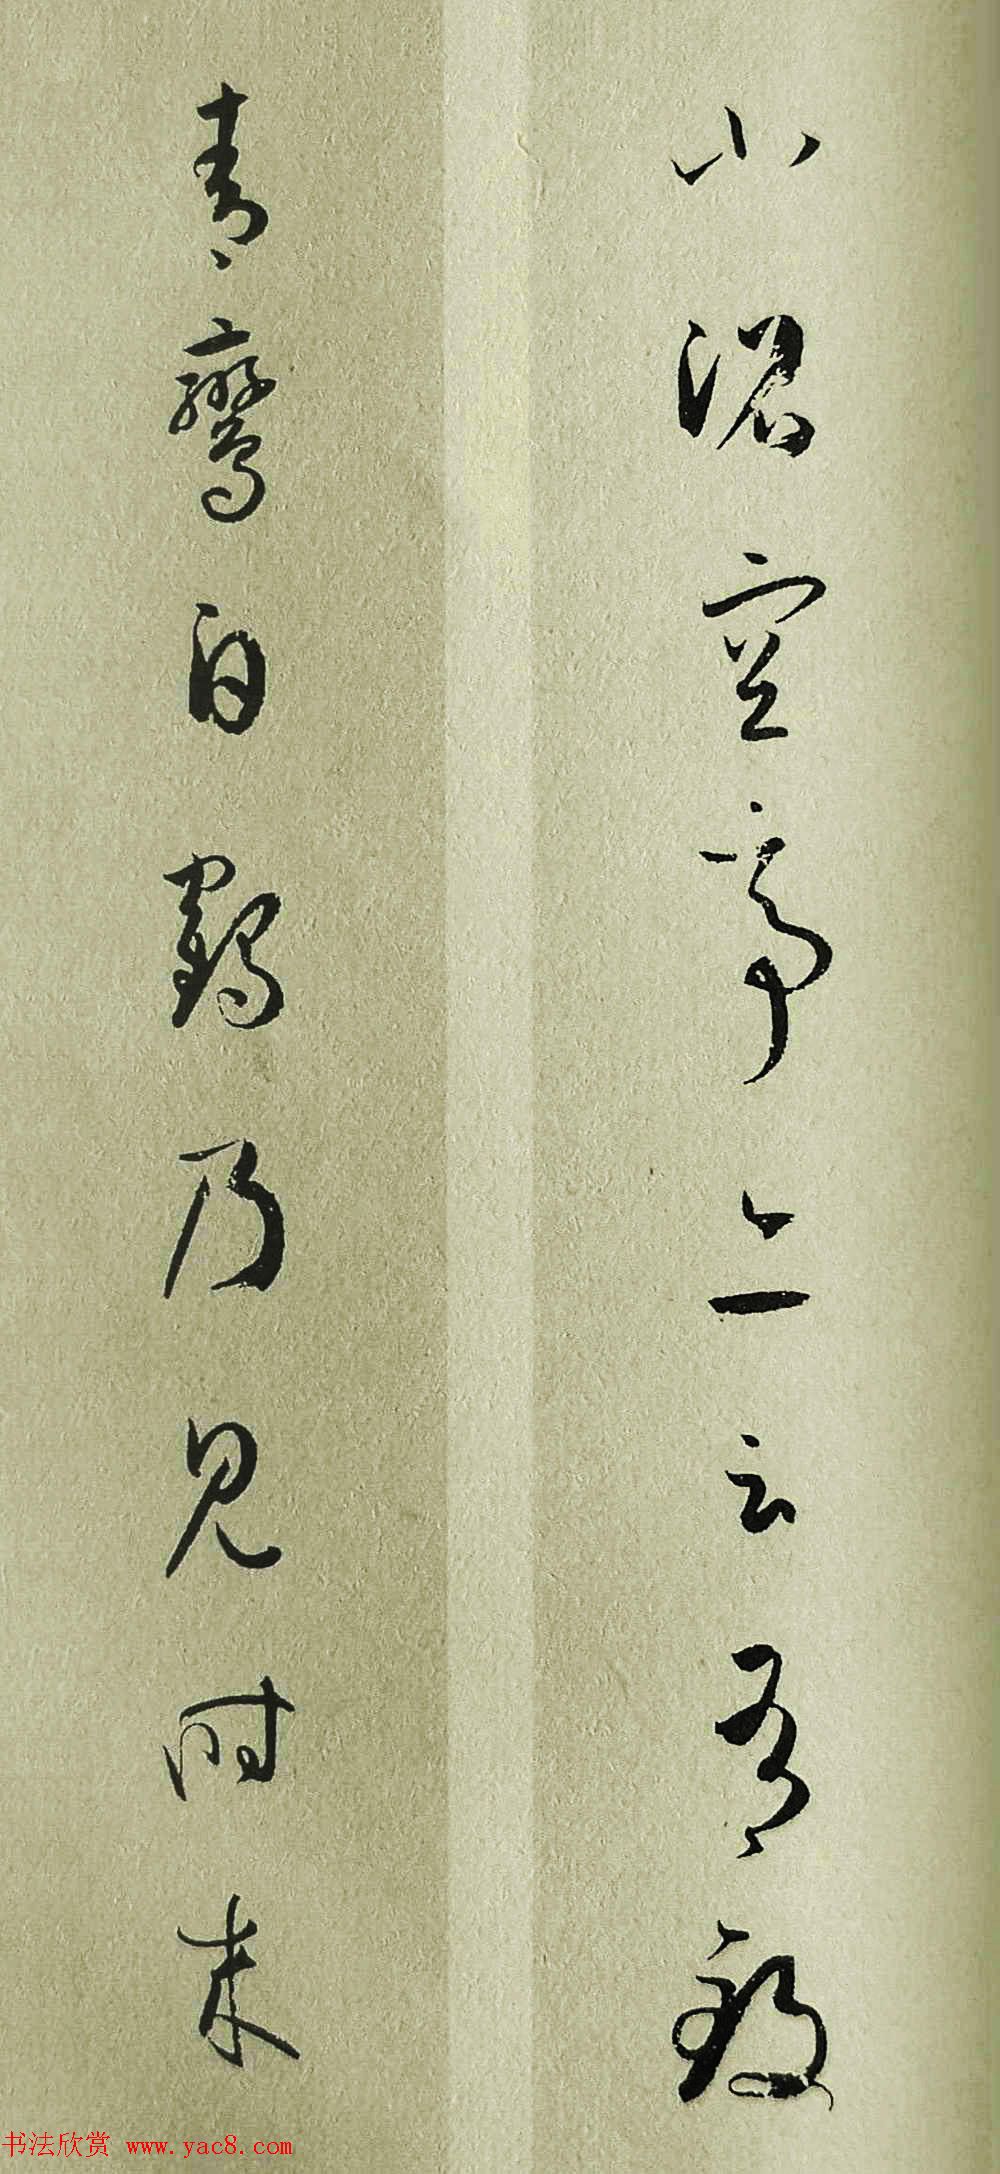 小沼空亭亦云有致
青鸾白鹤乃见时来
书法欣赏 www.yac8.com